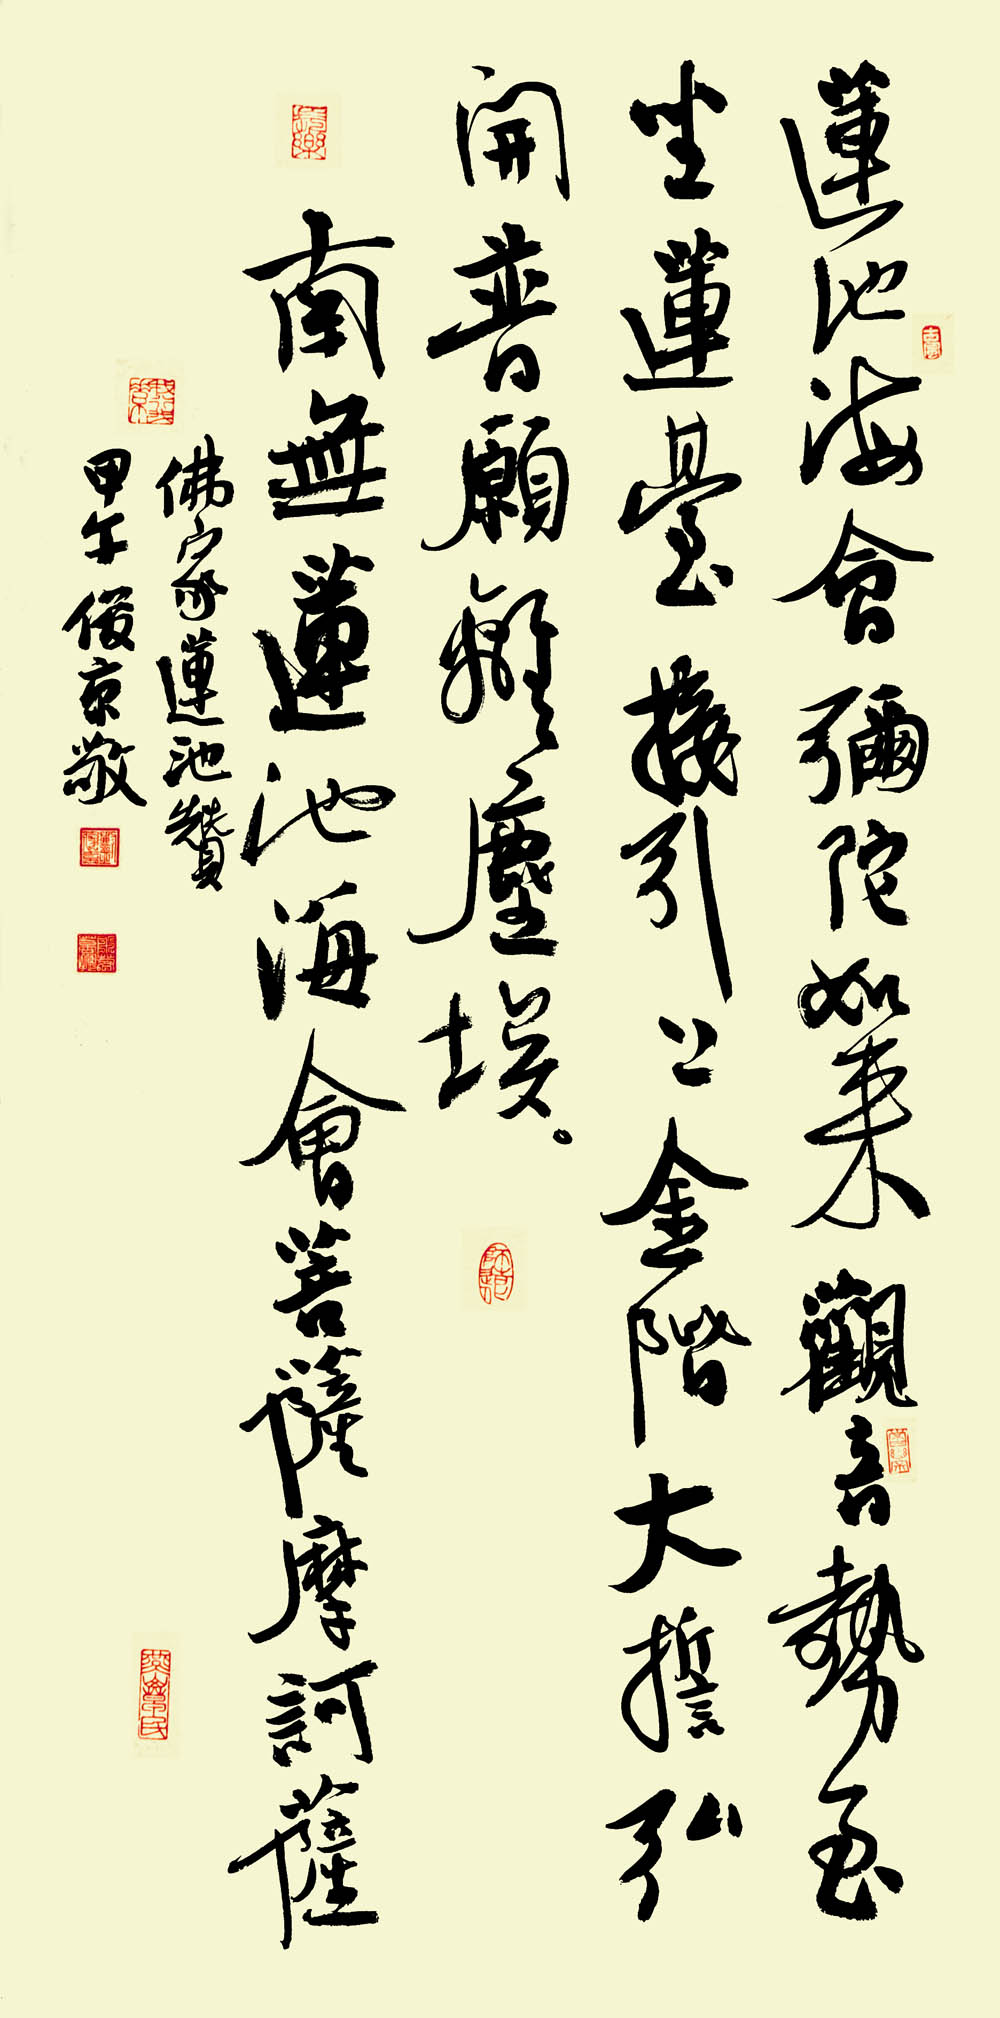 蓮池海會彌陀如来觀音勢至
坐蓮臺接引上金階大誓弘
開普願離塵埃。
南無蓮池海會菩薩摩訶薩
佛家蓮池贊
甲午俊京敬